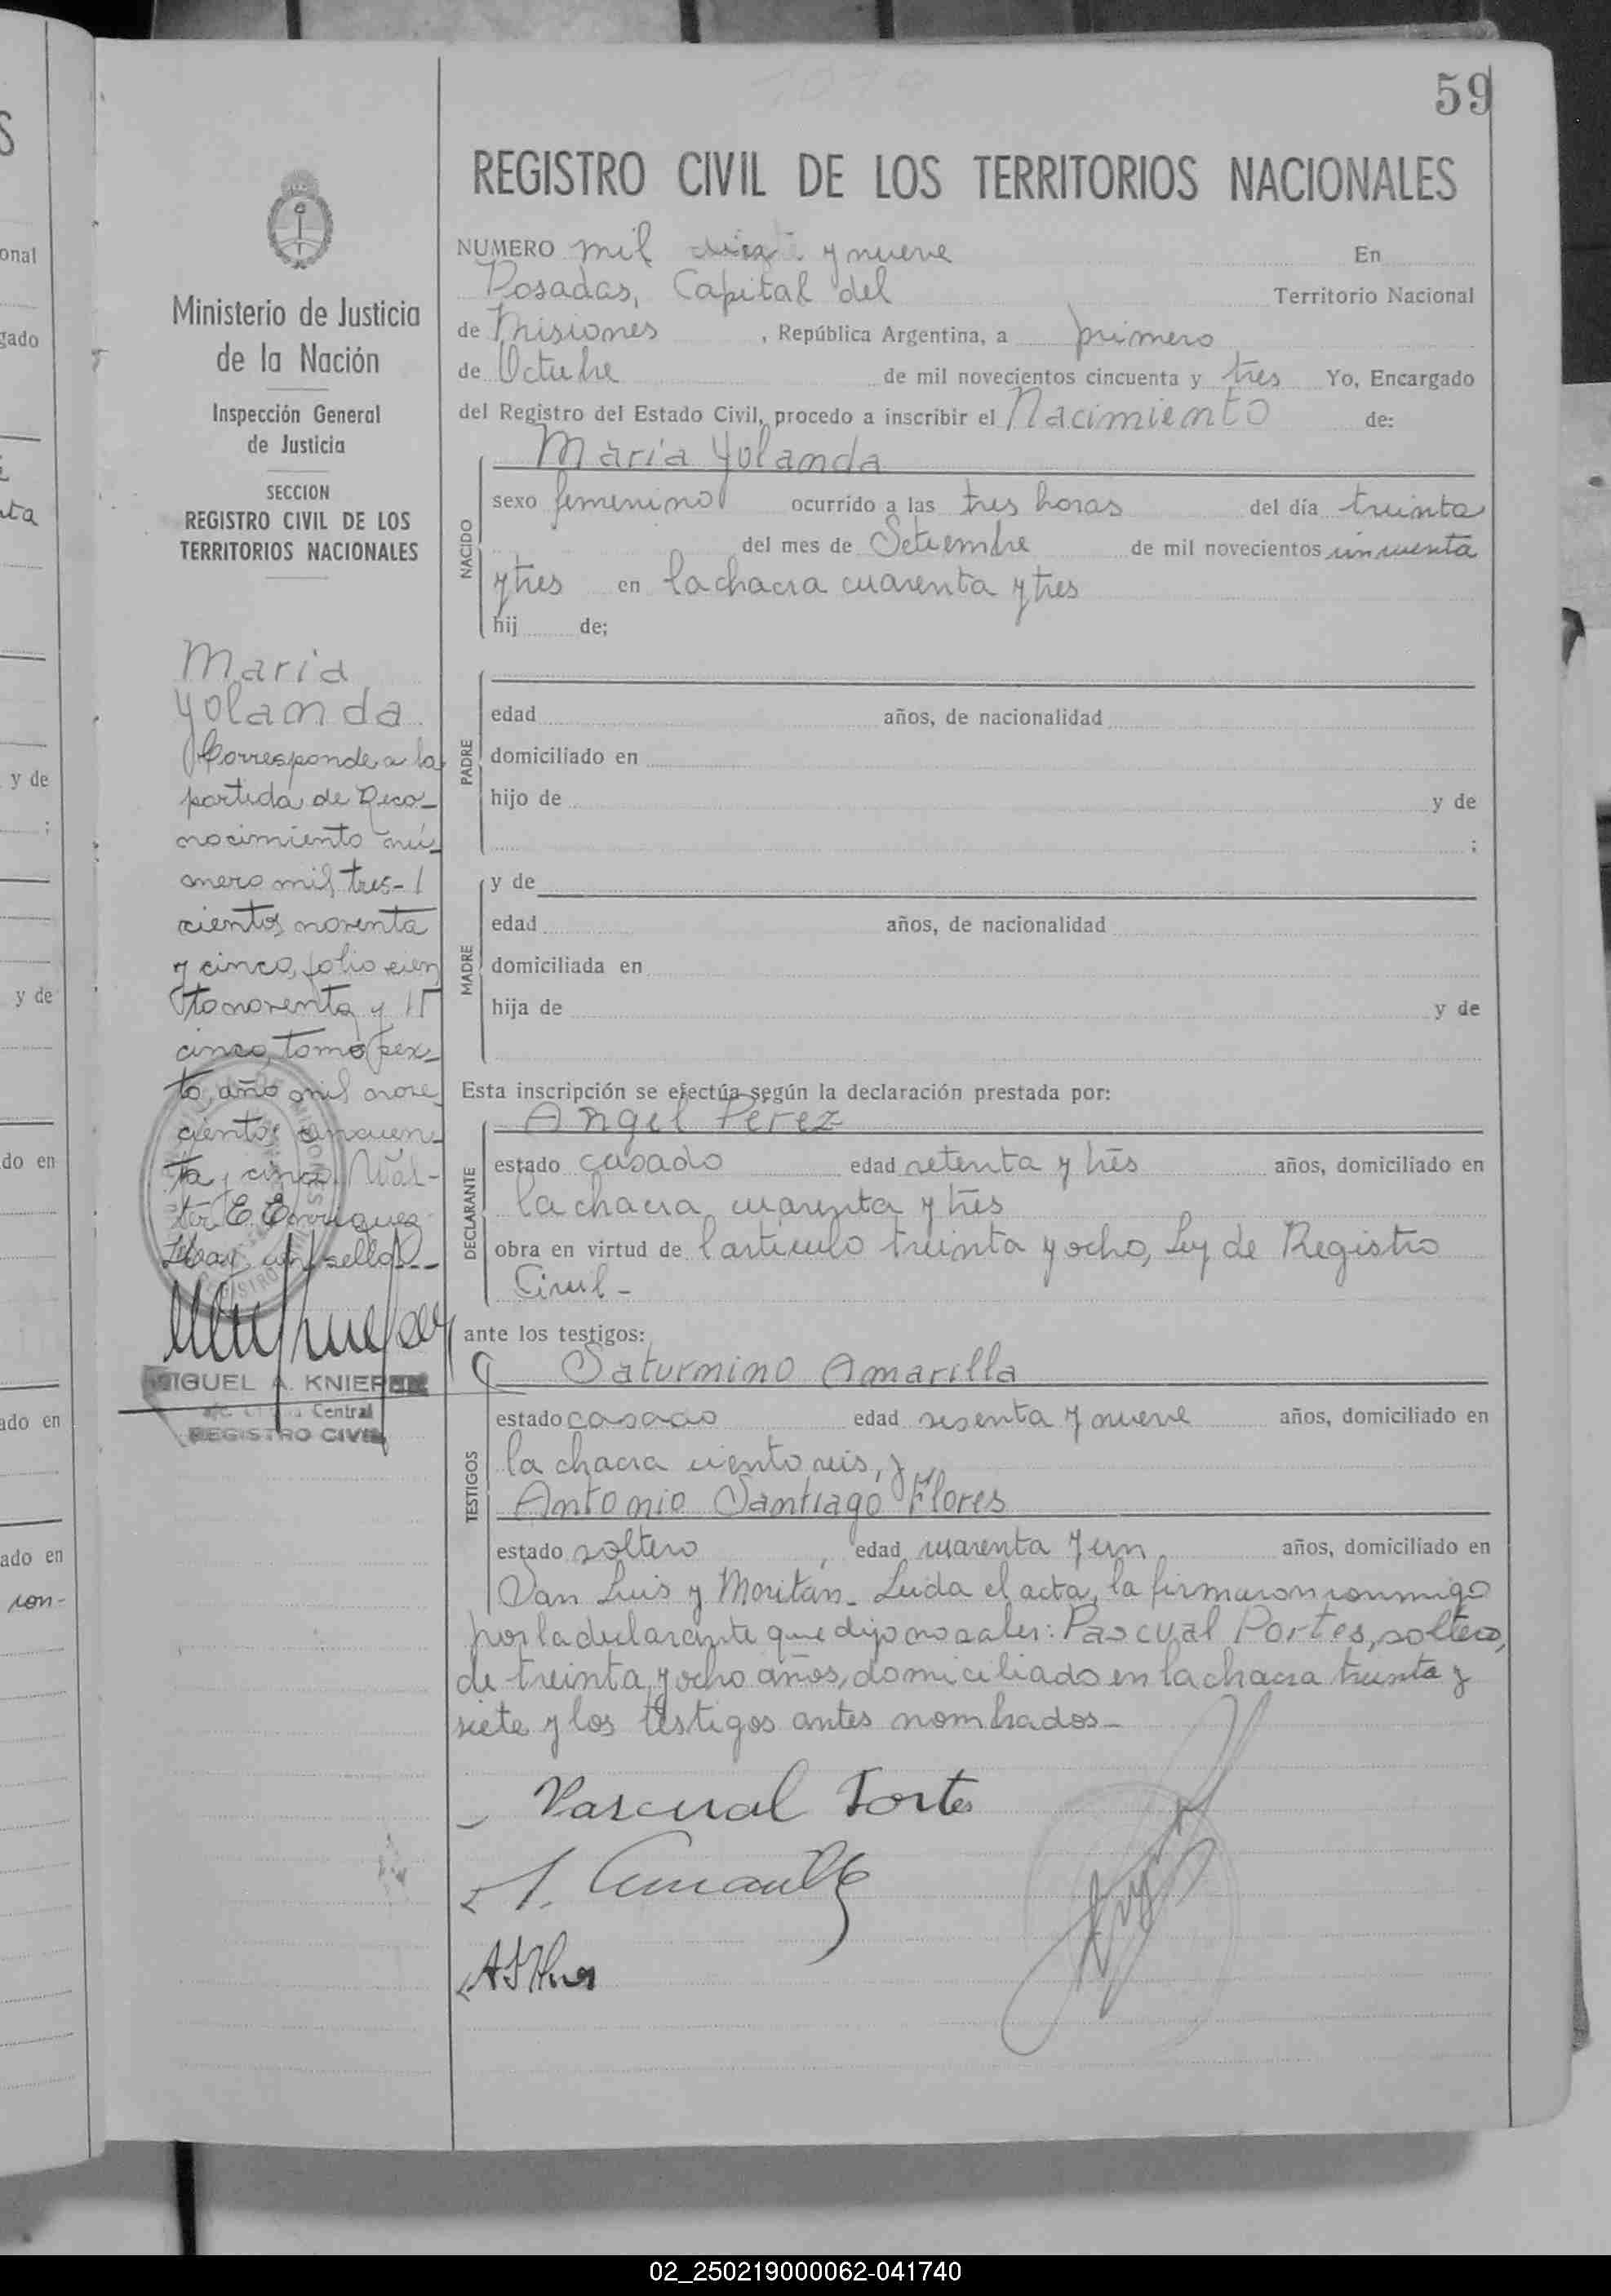 59
REGISTRO CIVIL DE LOS TERRITORIOS NACIONALES
NUMERO mil y nueve En
Posadas, Capital del Territorio Nacional
de Misiones, República Argentina, a primero
de Octubre de mil novecientos cincuenta y tres Yo, Encargado
del Registro del Estado Civil, procedo a inscribir el Nacimiento de:
Maria Yolanda
NACIDO
sexo femenino ocurrido a las tres horas del día treinta
del mes de Setiembre de mil novecientos cincuenta
y tres en la chacra cuarenta y tres
hij de;
PADRE
edad años, de nacionalidad
domiciliado en
hijo de y de
;
MADRE
y de
edad años, de nacionalidad
domiciliada en
hija de y de
Esta inscripción se efectúa según la declaración prestada por:
Angel Perez
DECLARANTE
estado casado edad setenta y tres años, domiciliado en
la chacra cuarenta y tres
obra en virtud de l articulo treinta y ocho, Ley de Registro
Civil -
ante los testigos:
Saturnino Amarilla
TESTIGOS
estado casado edad sesenta y nueve años, domiciliado en
la chacra ciento seis, y
Antonio Santiago Flores
estado soltero, edad cuarenta y un años, domiciliado en
San Luis y Moritán. Leida el acta, la firmaron conmigo
por la declarante que dijo no saber: Pascual Portes, soltero,
de treinta y ocho años, domiciliado en la chacra treinta y
siete y los testigos antes nombrados -
Pascual Portes
A S Flores
Ministerio de Justicia
de la Nación
Inspección General
de Justicia
SECCION
REGISTRO CIVIL DE LOS
TERRITORIOS NACIONALES
Maria
Yolanda
Corresponde a la
partida de Reco-
nocimiento nú-
mero mil tres-
cientos noventa
y cinco, folio cien
to noventa y
cinco, tomo sex-
to, año mil nove
cientos cincuen-
ta y cinco. Wal-
ter E. Enriquez
Hay un sello. --
MIGUEL A. KNIEPER
Central
REGISTRO CIVIL
onal
gado
y de
y de
do en
ado en
ado en
con-
02_250219000062-041740